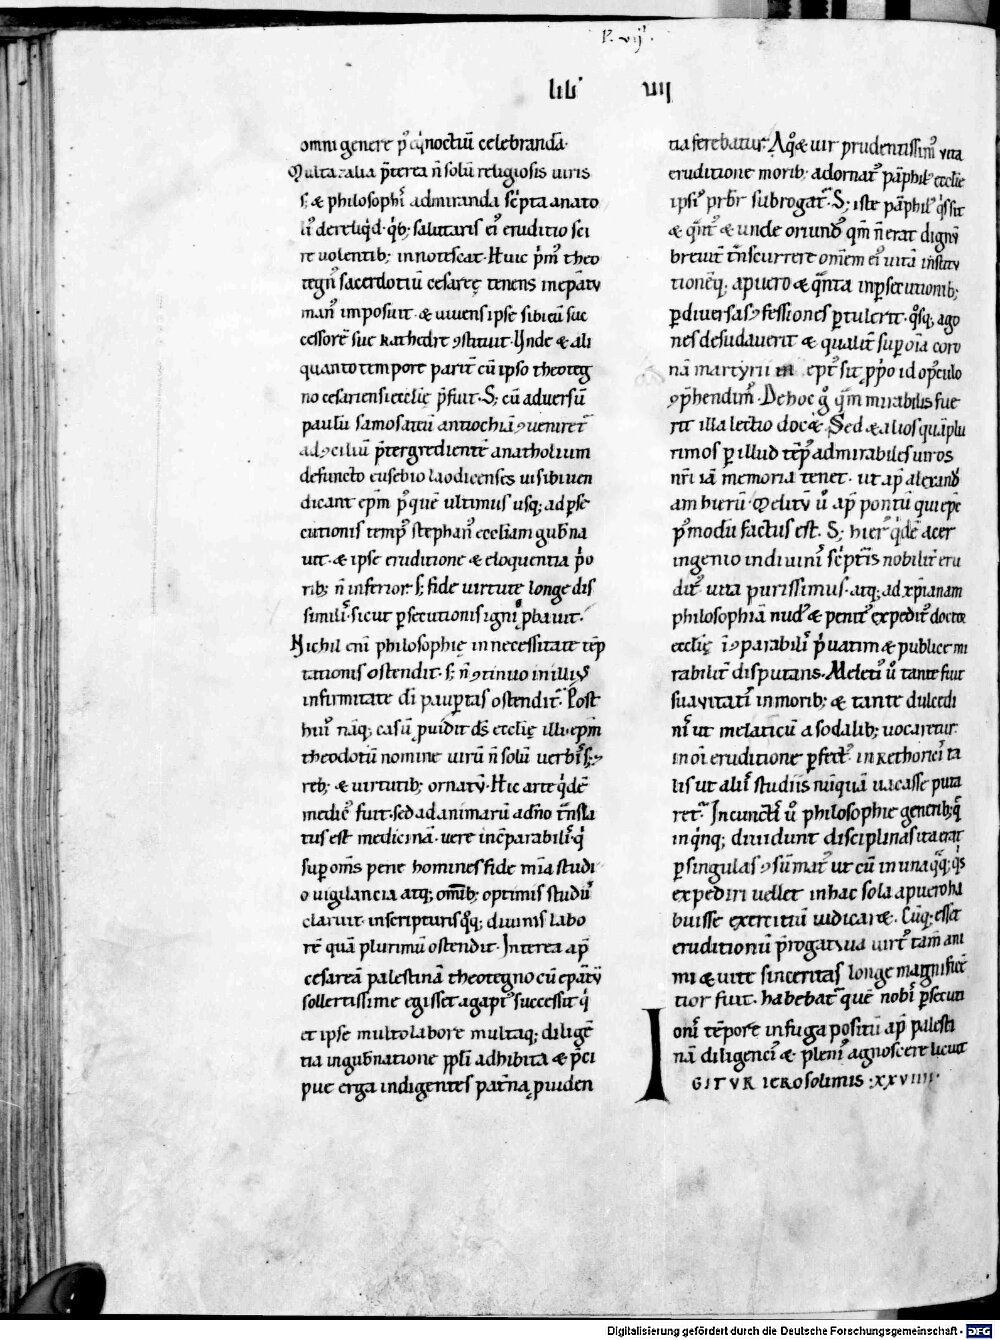 P. vij.
lib' VII
omni genere p' eqinoctiū celebranda.
Multa & alia p̄terea ñ solū religiosis uiris
s; & philosophis admiranda sc̄pta anato
li' dereliq'd. q'b; salutaris ei' eruditio sci
re uolentib; innotescat. Huic p̄m' theo
tegn' sacerdotiū cesareę tenens in ep̄atu
man' imposuit. & uiuens ipse sibi eū suc
cessorē sue kathedre ꝯstituit. Unde & ali
quanto tempore parit' cū ipso theoteg
no cesariensi eccl'ię p̄fuit. S; cū aduersū
paulū samosateū antiochiā ꝯueniret'
ad ꝯciliū p̄tergrediente anatholium
defuncto eusebio laodicenses ui sibi uen
dicant ep̄m p' quē ultimus usq; ad p̱se
cutionis temp' stephan' eccl'iam gub'na
uit. & ipse eruditione & eloquentia p'o
rib; ñ inferior. s; fide uirtute longe dis
similis. sicut p̱secutionis ignis p̱bauit.
Nichil eni philosophię in necessitate tēp
tationis ostendit. s; ñ ꝯtinuo in illius
infirmitate di' paup̱tas ostendit'. Post
hui' naq; casū p̱uidit d̄s eccl'ię illi' ep̄m
theodotū nomine uirū ñ solū uerbis; s;
reb; & uirtutib; ornatū. Hic arte q'dē
medic' fuit. sed ad animarū adm̄o t̄nsla
tus est medicinā. uere incōparabilis. q'
sup̱ om̄s pene homines fide m̄ia studi
o uigilancia atq; om̄ib; optimis studiis
claruit. in scripturis q̊q; diuinis labo
rē quā plurimū ostendit. Interea ap̄
cesareā palestinā theotegno cū ep̄atū
sollertissime egisset agapi' successit q'
et ipse multo labore multaq; diligē
tia in gub'natione pp̄li adhibita & p̄ci
pue erga indigentes pat'na p̱uiden
tia ferebatur. A q̊ & uir prudentissim' uita
eruditione morib; adornat' pāphil' eccl'ie
ipsi' prb'r subrogat'. S; iste pāphil' q's sit
& q̄nt' & unde oriund' qm̄ ñ erat dignū
breuit' t̄nscurrere om̄em ei' uitā institu
tionēq; a puero & q̄nta in p̱secutionib;
p̱ diuersas ꝯfessiones p̱tulerit. q̊sq; ago
nes desudauerit & qualit' sup̱ oīa coro
nā martyrii ept' sit p̱p'o id op̱culo
ꝯp̄hendim'. De hoc g̊ q̄m mirabilis fue
rit illa lectio doc&. Sed & alios quā plu
rimos p̱ illud tēp' admirabiles uiros
nr̄i iā memoria tenet. ut ap̄ alexand'
am hierū. Melitū u̇ ap̄ pontū qui ep̄c
p' modū factus est. S; hier' q'dē acer
ingenio in diuinis sc̄ptis nobilit' eru
dit' uita purissimus. atq; ad xp̄ianam
philosophiā nud' & penit' expedit' doctor
eccl'ię īꝯparabilis p'uatim & publice mi
rabilit' disputans. Meleti' u̇ tante fuit
suauitatis in morib; & tante dulcedi
nis ut melaticū a sodalib; uocaretur.
in oi eruditione p̱fect'. in rethoricis ta
lis ut aliis studiis nūquā uacasse puta
ret'. In cunctis u̇ philosophie generib; q'
in q'nq; diuidunt disciplinas ita erat
p̱ singulas ꝯsūmat' ut cū in una q̄q; q's
expediri uellet in hac sola a puero ha
buisse exercitiū iudicar&. Cūq; esset
eruditionū p̄rogatiua uirt' tam̄ ani
mi & uite sinceritas longe magnificē
tior fuit. habebat' quē nobis p̱secuti
onis tēpore in fuga positū ap̄ palesti
nā diligencis & plenis agnoscere licuit
IGITVR IEROSOLIMIS .XXVIIII.
Digitalisierung gefördert durch die Deutsche Forschungsgemeinschaft - DFG